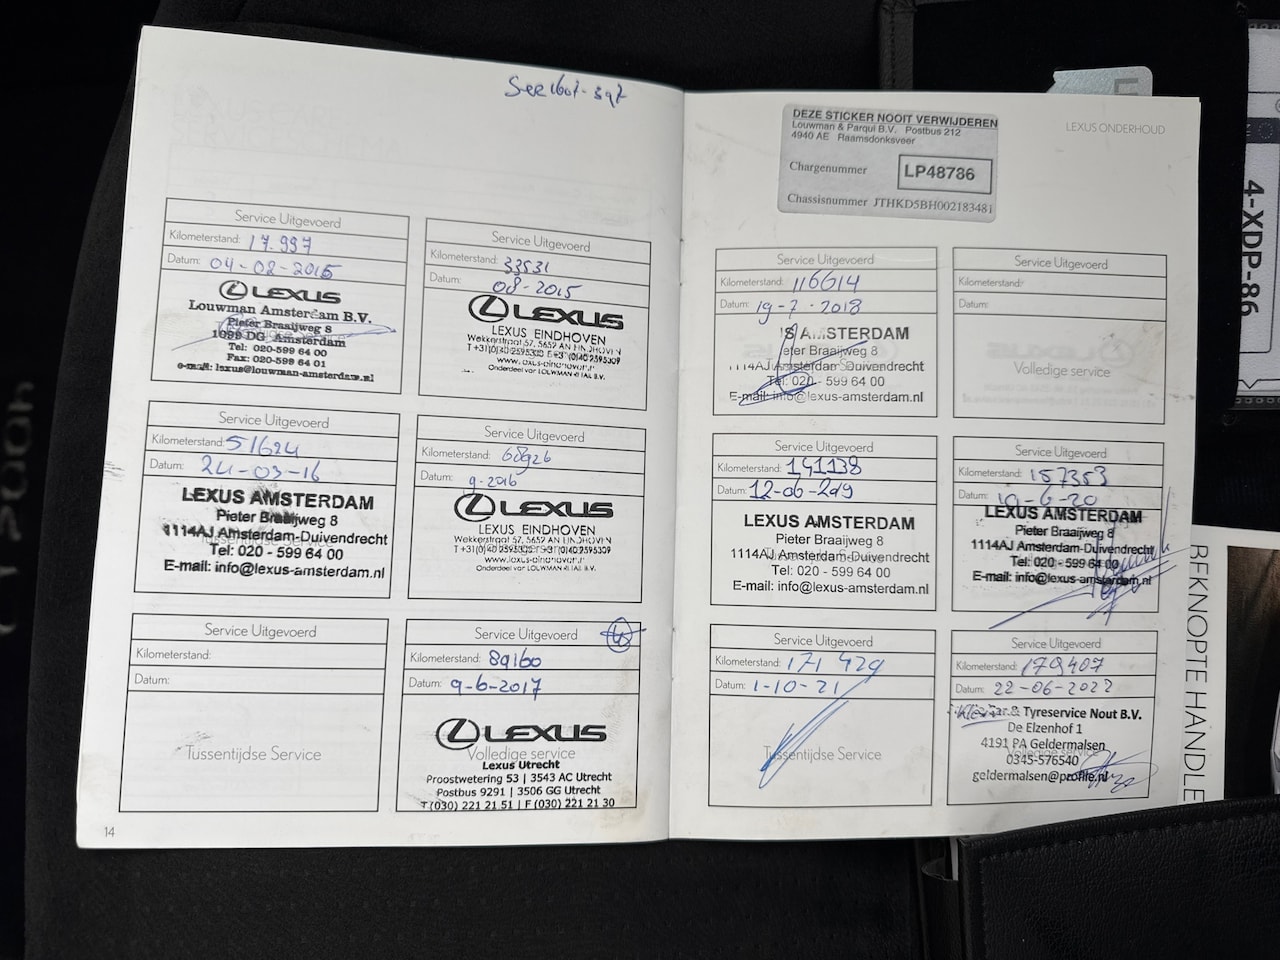 14
Service Uitgevoerd
Kilometerstand: 17.997
Datum: 04-02-2015
LEXUS
Louwman Amsterdam B.V.
Pieter Braaijweg 8
1099 DG Amsterdam
Tel: 020-599 64 00
Fax: 020-599 64 01
e-mail: lexus@louwman-amsterdam.nl
Service Uitgevoerd
Kilometerstand: 33531
Datum: 08-2015
LEXUS
LEXUS EINDHOVEN
Wekkerstraat 57, 5652 AN EINDHOVEN
Onderdeel van LOUWMAN RETAIL B.V.
Service Uitgevoerd
Kilometerstand: 51624
Datum: 24-03-16
LEXUS AMSTERDAM
Pieter Braaijweg 8
1114AJ Amsterdam-Duivendrecht
Tussentijdse Service
Tel: 020 - 599 64 00
E-mail: info@lexus-amsterdam.nl
Service Uitgevoerd
Kilometerstand: 68926
Datum: 9-2016
LEXUS
LEXUS EINDHOVEN
Wekkerstraat 57, 5652 AN EINDHOVEN
Onderdeel van LOUWMAN RETAIL B.V.
Service Uitgevoerd
Kilometerstand:
Datum:
Tussentijdse Service
Service Uitgevoerd
Kilometerstand: 89160
Datum: 9-6-2017
LEXUS
Volledige service
Lexus Utrecht
Proostwetering 53 | 3543 AC Utrecht
Postbus 9291 | 3506 GG Utrecht
T (030) 221 21 51 | F (030) 221 21 30
DEZE STICKER NOOIT VERWIJDEREN
Louwman & Parqui B.V. Postbus 212
4940 AE Raamsdonksveer
Chargenummer LP48786
Chassisnummer JTHKD5BH002183481
LEXUS ONDERHOUD
Service Uitgevoerd
Kilometerstand: 116614
Datum: 19-7-2018
AMSTERDAM
Pieter Braaijweg 8
1114AJ Amsterdam-Duivendrecht
Tel: 020 - 599 64 00
E-mail: info@lexus-amsterdam.nl
Service Uitgevoerd
Kilometerstand:
Datum:
Volledige service
Service Uitgevoerd
Kilometerstand: 141138
Datum: 12-06-2019
LEXUS AMSTERDAM
Pieter Braaijweg 8
1114AJ Amsterdam-Duivendrecht
Tel: 020 - 599 64 00
E-mail: info@lexus-amsterdam.nl
Service Uitgevoerd
Kilometerstand: 157353
Datum: 10-6-20
LEXUS AMSTERDAM
Pieter Braaijweg 8
1114AJ Amsterdam-Duivendrecht
Tel: 020 - 599 64 00
E-mail: info@lexus-amsterdam.nl
Service Uitgevoerd
Kilometerstand: 171 429
Datum: 1-10-21
Tussentijdse Service
Service Uitgevoerd
Kilometerstand: 179407
Datum: 22-06-2022
& Tyreservice Nout B.V.
De Elzenhof 1
4191 PA Geldermalsen
Volledige service
0345-576540
geldermalsen@profile.nl
4-XDP-86
BEKNOPTE HANDLE